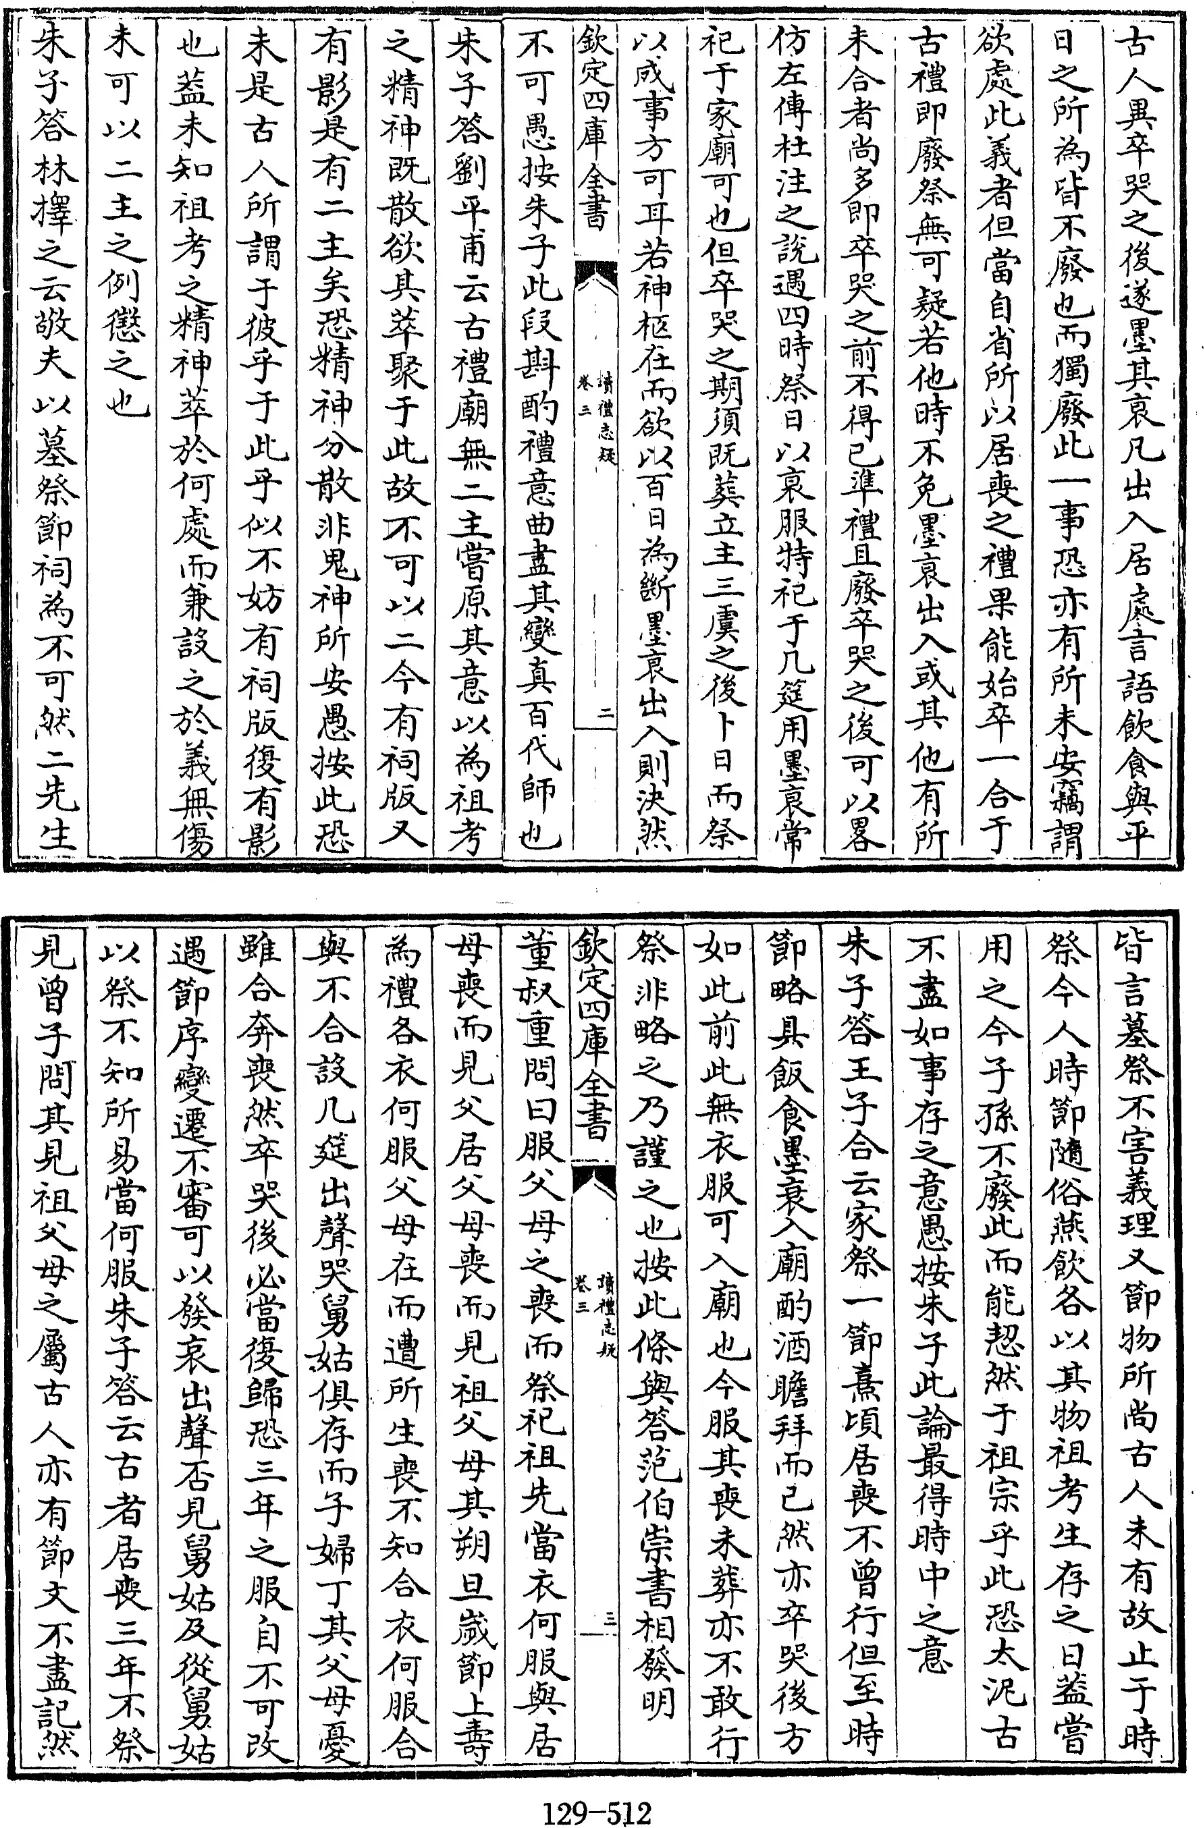 古人異卒哭之後遂墨其衰凡出入居處言語飲食與平
日之所為皆不廢也而獨廢此一事恐亦有所未安竊謂
欲處此義者但當自省所以居喪之禮果能始卒一合于
古禮即廢祭無可疑若他時不免墨衰出入或其他有所
未合者尚多即卒哭之前不得已準禮且廢卒哭之後可以畧
仿左傳杜注之說遇四時祭日以衰服特祀于几筵用墨衰常
祀于家廟可也但卒哭之期須既葬立主三虞之後卜日而祭
以成事方可耳若神柩在而欲以百日為斷墨衰出入則決然
欽定四庫全書
讀禮志疑
卷三
二
不可愚按朱子此段斟酌禮意曲盡其變真百代師也
朱子答劉平甫云古禮廟無二主嘗原其意以為祖考
之精神既散欲其萃聚于此故不可以二今有祠版又
有影是有二主矣恐精神分散非鬼神所安愚按此恐
未是古人所謂于彼乎于此乎似不妨有祠版復有影
也葢未知祖考之精神萃於何處而兼設之於義無傷
未可以二主之例懲之也
朱子答林擇之云敬夫以墓祭節祠為不可然二先生
皆言墓祭不害義理又節物所尚古人未有故止于時
祭今人時節隨俗燕飲各以其物祖考生存之日葢嘗
用之今子孫不廢此而能恝然于祖宗乎此恐太泥古
不盡如事存之意愚按朱子此論最得時中之意
朱子答王子合云家祭一節熹頃居喪不曾行但至時
節略具飯食墨衰入廟酌酒瞻拜而已然亦卒哭後方
如此前此無衣服可入廟也今服其喪未葬亦不敢行
祭非略之乃謹之也按此條與答范伯崇書相發明
欽定四庫全書
讀禮志疑
卷三
三
董叔重問曰服父母之喪而祭祀祖先當衣何服與居
母喪而見父居父母喪而見祖父母其朔旦歲節上壽
為禮各衣何服父母在而遭所生喪不知合衣何服合
與不合設几筵出聲哭舅姑俱存而子婦丁其父母憂
雖合奔喪然卒哭後必當復歸恐三年之服自不可改
遇節序變遷不審可以發哀出聲否見舅姑及從舅姑
以祭不知所易當何服朱子答云古者居喪三年不祭
見曾子問其見祖父母之屬古人亦有節文不盡記然
129-512